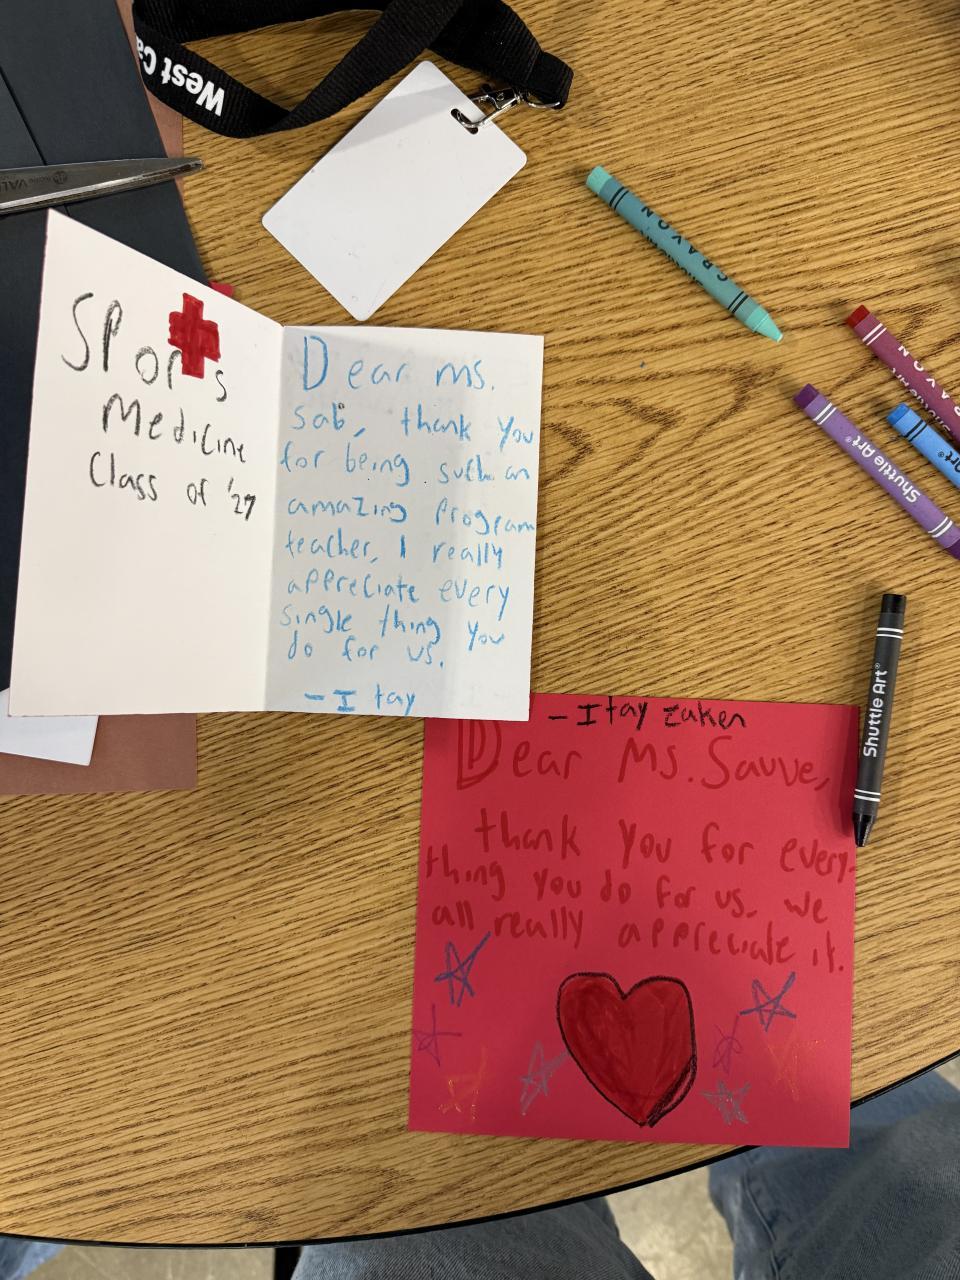 West Ca
VAL
CRAYON
CRAYON
Shuttle Art
Shuttle Art®
Art®
Shuttle Art®
Spor s
Medicine
Class of '27
Dear ms.
sab, thank you
for being such an
amazing program
teacher, I really
appreciate every
single thing you
do for us.
- Itay
- Itay zaken
Dear Ms. Sauve,
thank you for every-
thing you do for us. we
all really appreciate it.